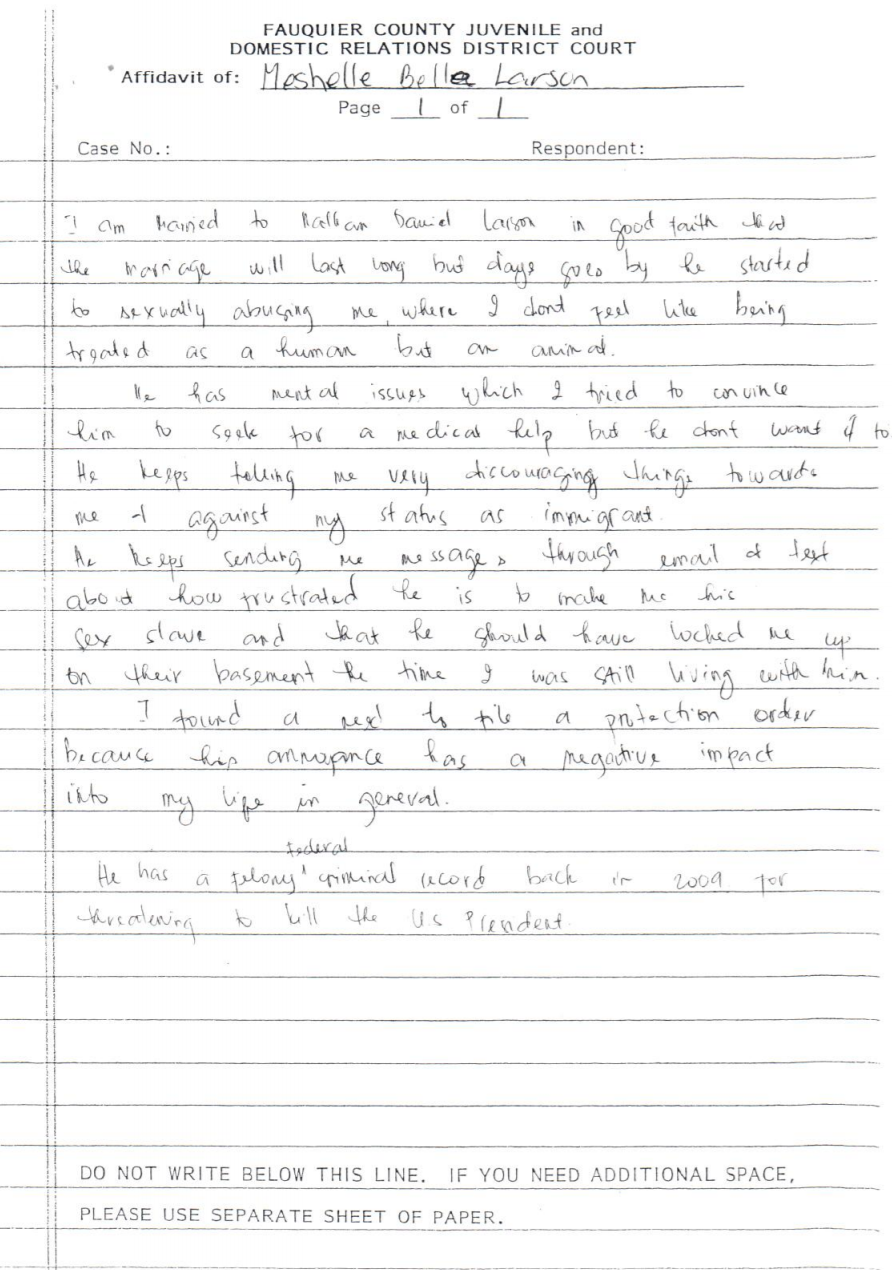 FAUQUIER COUNTY JUVENILE and
DOMESTIC RELATIONS DISTRICT COURT
Affidavit of: Meshelle Bella Larson
Page 1 of 1
Case No.: Respondent:
I am married to Nathan Daniel Larson in good faith that
the marriage will last long but days goes by he started
to sexually abusing me, where I dont feel like being
treated as a human but an animal.
He has mental issues which I tried to convince
him to seek for a medical help but he dont want to
He keeps telling me very discouraging things towards
me & against my status as immigrant.
He keeps sending me messages through email & text
about how frustrated he is to make me his
sex slave and that he should have locked me up
on their basement the time I was still living with him.
I found a need to file a protection order
because his annoyance has a negative impact
into my life in general.
federal
He has a felony criminal record back in 2009 for
threatening to kill the U.S President.
DO NOT WRITE BELOW THIS LINE. IF YOU NEED ADDITIONAL SPACE,
PLEASE USE SEPARATE SHEET OF PAPER.